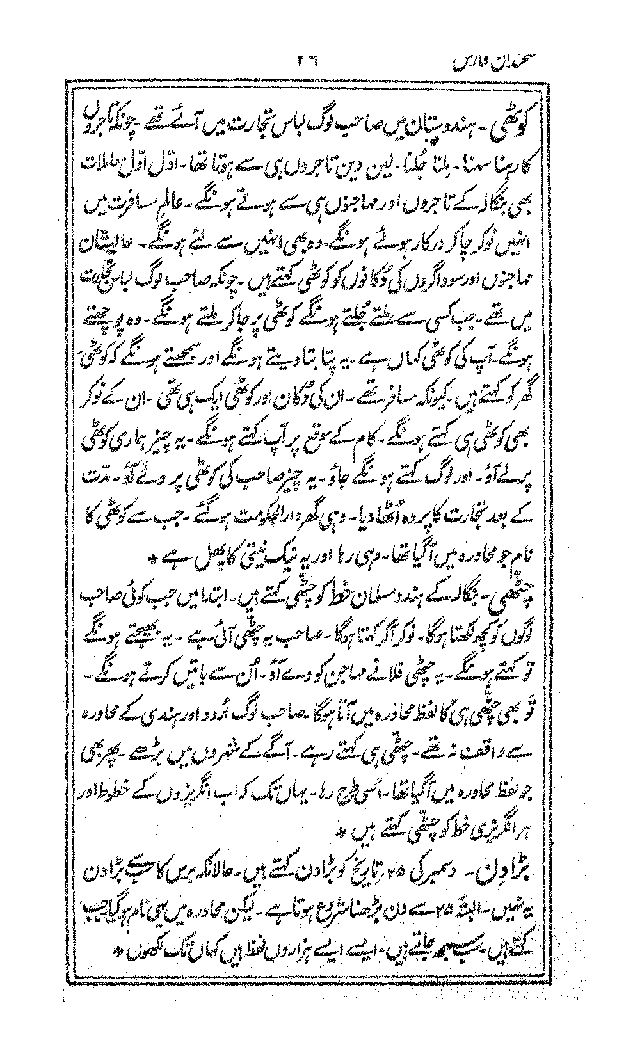 سخندان فارس ۲۶
کوٹھی - ہندوستان میں صاحب لوگ لباس تجارت میں آئے تھے - چونکہ تاجروں
کا رہنا سہنا - ملنا جلنا - لین دین تاجروں ہی سے ہوتا تھا - اوّل اوّل ملاقات
بھی بنگالہ کے تاجروں اور مہاجنوں ہی سے ہوئے ہونگے - عالم مسافرت میں
انہیں نوکر چاکر درکار ہوئے ہونگے - وہ بھی انہیں سے لئے ہونگے - عالیشان
مہاجنوں اور سوداگروں کی دُکانوں کو کوٹھی کہتے ہیں - چونکہ صاحب لوگ لباس تجارت
میں تھے - جب کسی سے ملتے جُلتے ہونگے کوٹھی پر جا کر ملتے ہونگے - وہ پوچھتے
ہونگے - آپ کی کوٹھی کہاں ہے - یہ پتا بتا دیتے ہونگے اور سمجھتے ہونگے کہ کوٹھی
گھر کو کہتے ہیں - کیونکہ مسافر تھے - ان کی دُکان اور کوٹھی ایک ہی تھی - ان کے نوکر
بھی کوٹھی ہی کہتے ہونگے - کام کے موقع پر آپ کہتے ہونگے - یہ چیز ہماری کوٹھی
پر لے آؤ - اور لوگ کہتے ہونگے جاؤ - یہ چیز صاحب کی کوٹھی پر دے آؤ - مدت
کے بعد تجارت کا پردہ اُٹھا دیا - وہی گھر دارالحکومت ہو گئے - جب سے کوٹھی کا
نام جو محاورہ میں آ گیا تھا - وہی رہا اور یہ نیک نیتی کا پھل ہے *
چٹھی - بنگالہ کے ہندو مسلمان خط کو چٹھی کہتے ہیں - ابتدا میں جب کوئی صاحب
لوگوں کو کچھ لکھتا ہوگا - نوکر آکر کہتا ہوگا - صاحب یہ چٹھی آئی ہے - یہ بھیجتے ہونگے
تو کہتے ہونگے - یہ چٹھی فلانے مہاجن کو دے آؤ - اُن سے باتیں کرتے ہونگے -
تو بھی چٹھی ہی کا لفظ محاورہ میں آتا ہوگا - صاحب لوگ اُردو اور ہندی کے محاورہ
سے واقف نہ تھے - چٹھی ہی کہتے رہے - آگے کے شہروں میں بڑھے - پھر بھی
جو لفظ محاورہ میں آ گیا تھا - اسی طرح رہا - یہاں تک کہ اب انگریزوں کے خطوط اور
ہر انگریزی خط کو چٹھی کہتے ہیں *
بڑا دِن - دسمبر کی ۲۵ تاریخ کو بڑا دن کہتے ہیں - حالانکہ برس کا سب سے بڑا دن
یہ نہیں - البتہ ۲۵ سے دن بڑھنا شروع ہوتا ہے - لیکن محاورہ میں یہی نام ہو گیا جب
کہتے ہیں - سب سمجھ جاتے ہیں - ایسے ایسے ہزاروں لفظ ہیں کہاں تک لکھوں *